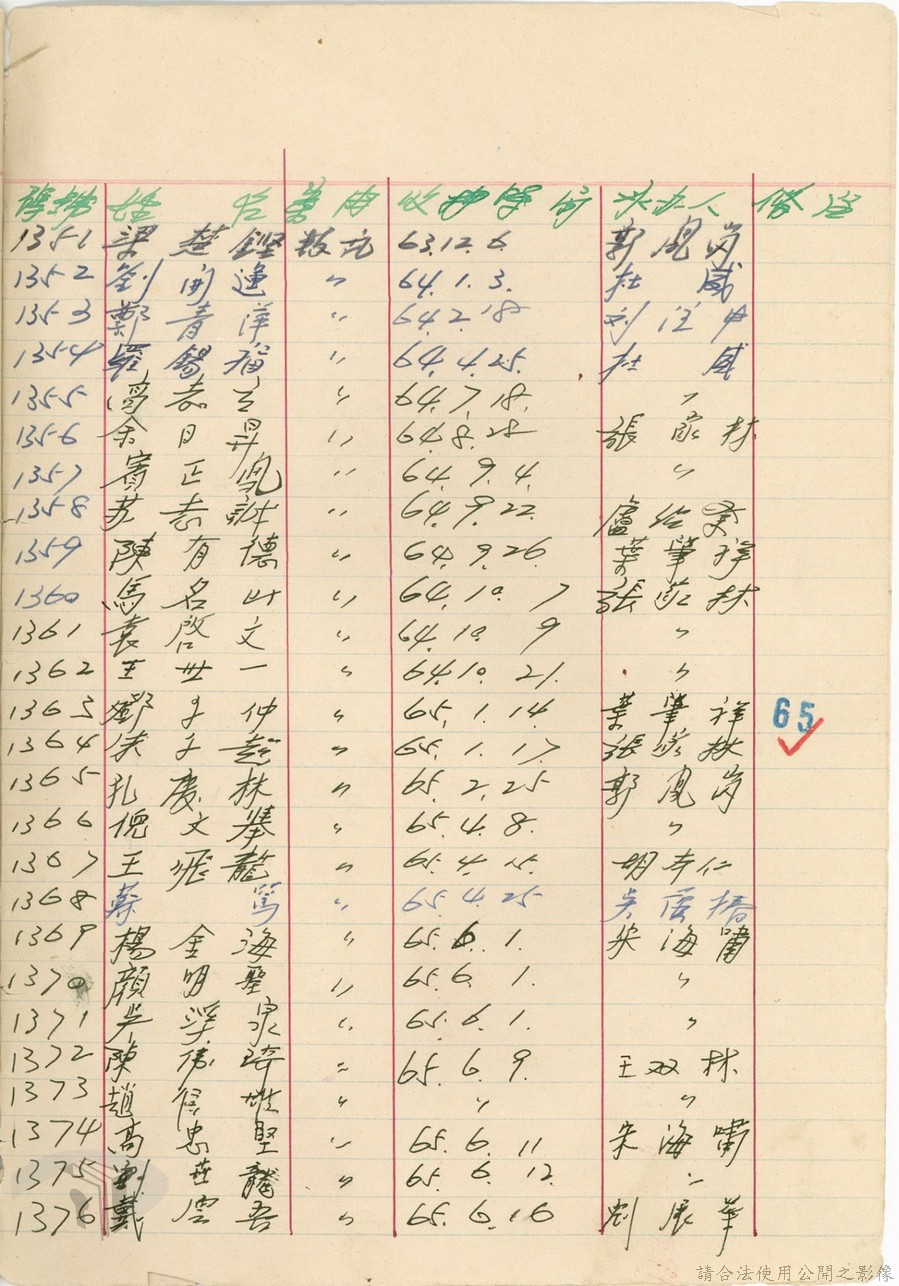 號 姓名 案由 收 時 承办人 備註
1351 梁楚鏗 叛亂 63.12.6 郭鳳岗
1352 劉開遠 〃 64.1.3. 杜威
1353 鄭青萍 〃 64.2.18 刘中
1354 羅錫 〃 64.4.25. 杜威
1355 高志 〃 64.7.18. 〃
1356 余日昇 〃 64.8.28 張家林
1357 賓正 〃 64.9.4. 〃
1358 苏志 〃 64.9.22. 盧
1359 陳有德 〃 64.9.26. 葉肇祥
1360 馬名山 〃 64.10.7 張家林
1361 袁啓文 〃 64.10.9 〃
1362 王世一 〃 64.10.21. 〃
1363 鄧子仲 〃 65.1.14 葉肇祥 65
1364 子超 〃 65.1.17. 張家林
1365 孔慶林 〃 65.2.25 郭鳳岗
1366 文 〃 65.4.8. 〃
1367 王飛龍 〃 65.4.15. 胡开仁
1368 蔡篤 〃 65.4.25 吳
1369 楊金海 〃 65.6.1. 朱海嘯
1370 顏明聖 〃 65.6.1. 〃
1371 吳深泉 〃 65.6.1. 〃
1372 陳偉琦 〃 65.6.9. 王双林
1373 趙雄 〃 〃 〃
1374 高忠堅 〃 65.6.11 朱海嘯
1375 劉世龍 〃 65.6.12. 〃
1376 戴雲吾 〃 65.6.16 刘展華
請合法使用公開之影像